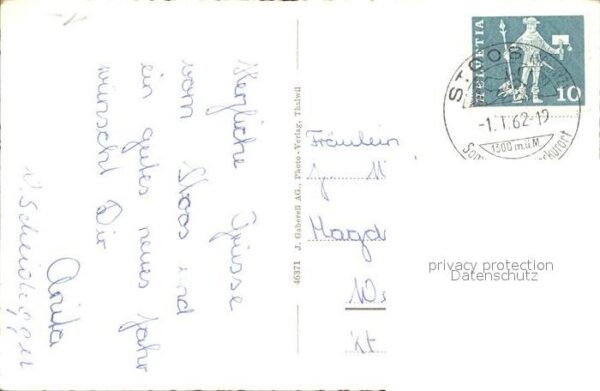 Herzliche Grüsse
vom Stoos und
ein gutes neues Jahr
wünscht Dir
Anita
V. Scheidegger
46371 J. Gaberell AG., Photo-Verlag, Thalwil
HELVETIA
10
STOOS
-1.1.62-19
1300 m ü.M.
Fräulein
Magd
Kt
privacy protection
Datenschutz